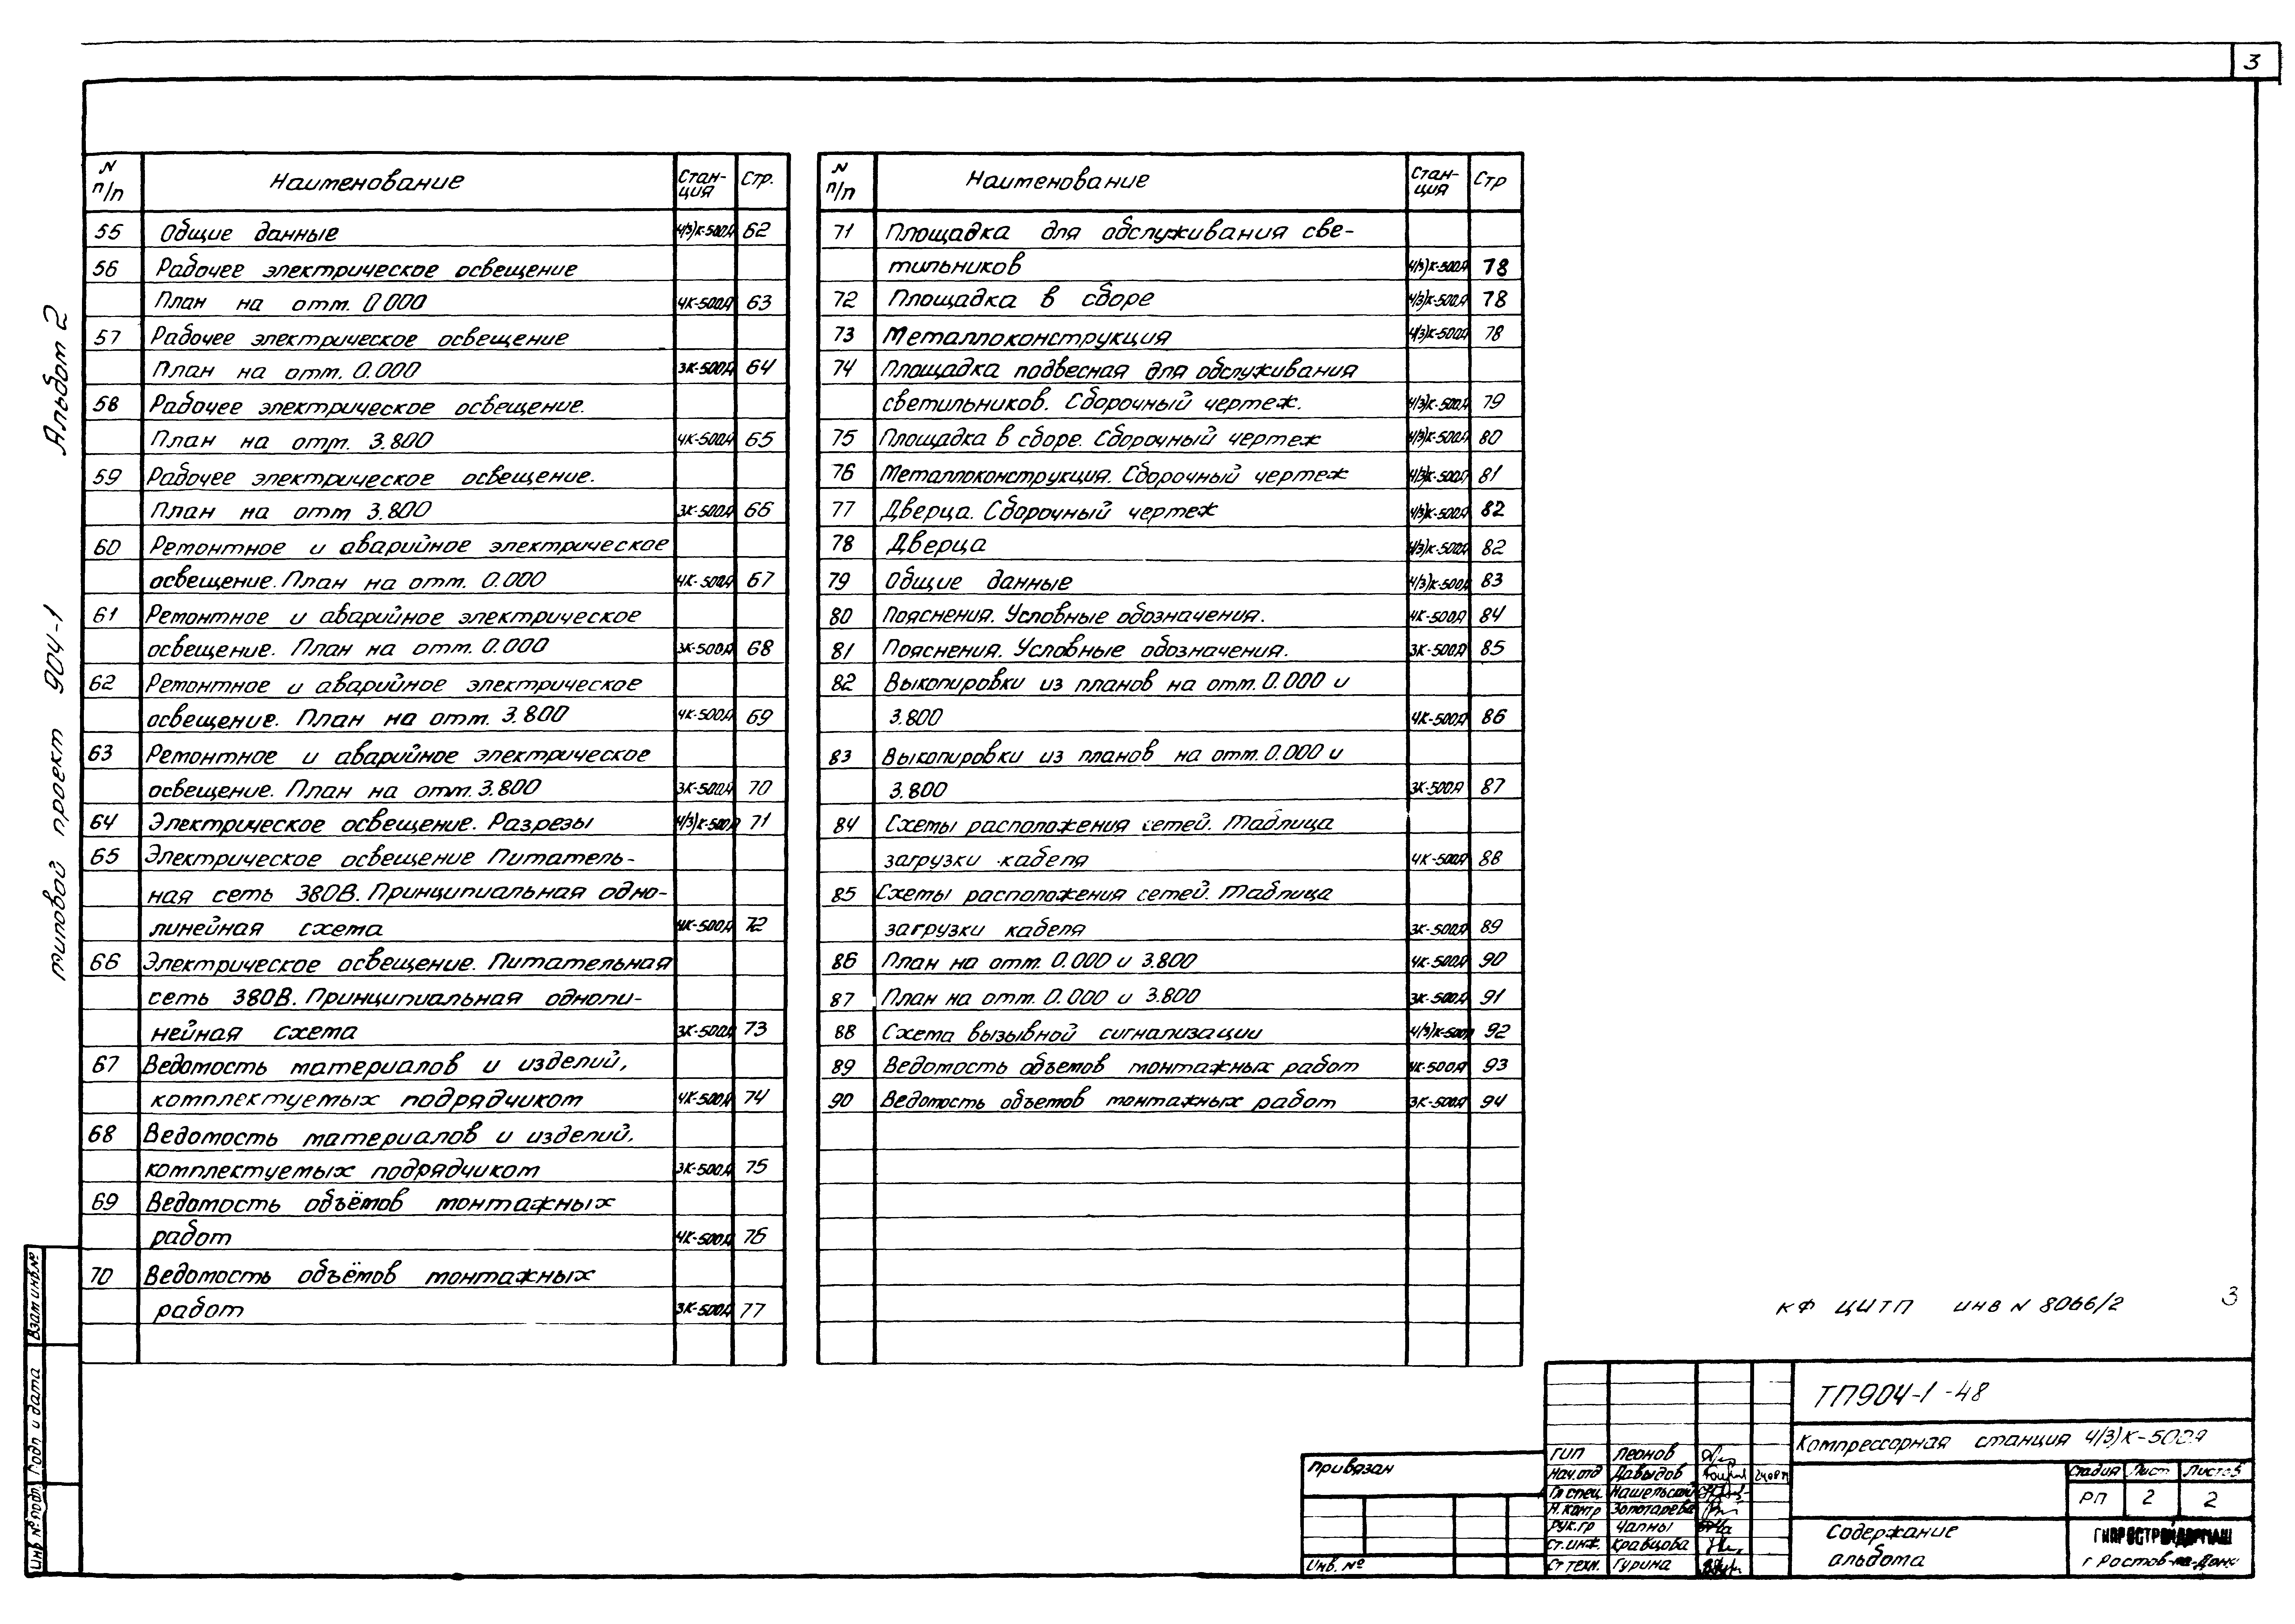 3
Альбом 2
типовой проект 904-1
N п/п Наименование Стан-ция Стр.
55 Общие данные 4/3)К-500А 62
56 Рабочее электрическое освещение
План на отм. 0.000 4К-500А 63
57 Рабочее электрическое освещение
План на отм. 0.000 3К-500А 64
58 Рабочее электрическое освещение.
План на отм. 3.800 4К-500А 65
59 Рабочее электрическое освещение.
План на отм 3.800 3К-500А 66
60 Ремонтное и аварийное электрическое
освещение. План на отм. 0.000 4К-500А 67
61 Ремонтное и аварийное электрическое
освещение. План на отм. 0.000 3К-500А 68
62 Ремонтное и аварийное электрическое
освещение. План на отм. 3.800 4К-500А 69
63 Ремонтное и аварийное электрическое
освещение. План на отм. 3.800 3К-500А 70
64 Электрическое освещение. Разрезы 4/3)К-500А 71
65 Электрическое освещение Питатель-
ная сеть 380В. Принципиальная одно-
линейная схема 4К-500А 72
66 Электрическое освещение. Питательная
сеть 380В. Принципиальная одноли-
нейная схема 3К-500А 73
67 Ведомость материалов и изделий,
комплектуемых подрядчиком 4К-500А 74
68 Ведомость материалов и изделий,
комплектуемых подрядчиком 3К-500А 75
69 Ведомость объёмов монтажных
работ 4К-500А 76
70 Ведомость объёмов монтажных
работ 3К-500А 77
N п/п Наименование Стан-ция Стр
71 Площадка для обслуживания све-
тильников 4/3)К-500А 78
72 Площадка в сборе 4/3)К-500А 78
73 Металлоконструкция 4/3)К-500А 78
74 Площадка подвесная для обслуживания
светильников. Сборочный чертеж. 4/3)К-500А 79
75 Площадка в сборе. Сборочный чертеж 4/3)К-500А 80
76 Металлоконструкция. Сборочный чертеж 4/3)К-500А 81
77 Дверца. Сборочный чертеж 4/3)К-500А 82
78 Дверца 4/3)К-500А 82
79 Общие данные 4/3)К-500А 83
80 Пояснения. Условные обозначения. 4К-500А 84
81 Пояснения. Условные обозначения. 3К-500А 85
82 Выкопировки из планов на отм. 0.000 и
3.800 4К-500А 86
83 Выкопировки из планов на отм. 0.000 и
3.800 3К-500А 87
84 Схемы расположения сетей. Таблица
загрузки кабеля 4К-500А 88
85 Схемы расположения сетей. Таблица
загрузки кабеля 3К-500А 89
86 План на отм. 0.000 и 3.800 4К-500А 90
87 План на отм. 0.000 и 3.800 3К-500А 91
88 Схема вызывной сигнализации 4/3)К-500А 92
89 Ведомость объемов монтажных работ 4К-500А 93
90 Ведомость объемов монтажных работ 3К-500А 94
КФ ЦИТП инв N 8066/2 3
Взам инв.№
Подп и дата
Инв № подл.
Привязан
Инв. №
ГИП Леонов
Нач.отд Давыдов
Гл спец. Нашельский
Н.контр Золотарева
Рук.гр Чапны
Ст.инж. Кравцова
Ст техн. Гурина
ТП904-1-48
Компрессорная станция 4/3)К-500А
Стадия Лист Листов
РП 2 2
Содержание
альбома
ГИПРОСТРОЙДОРМАШ
г Ростов-на-Дону